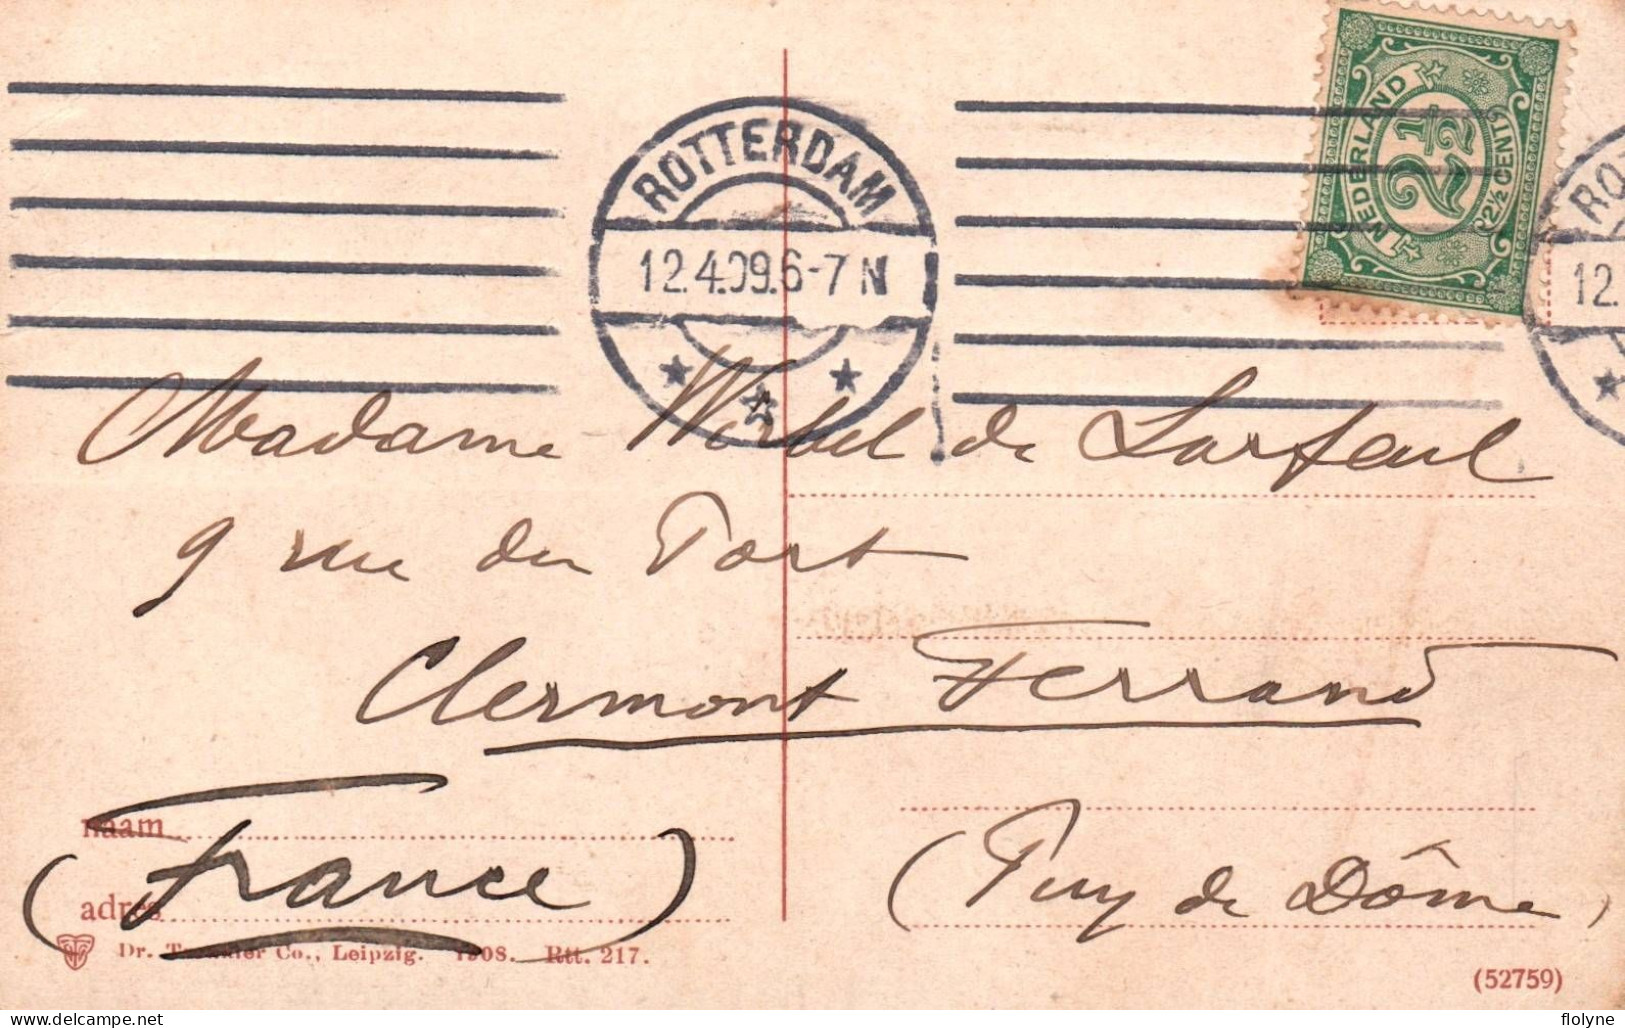 ROTTERDAM
12.4.09.6-7 N
NEDERLAND
2½
2½ CENT
ROT
12.
Madame de
9 rue du Port
Clermont Ferrand
(Puy de Dôme)
naam
(France)
adres
Dr. Co., Leipzig. 1908. Rtt. 217.
(52759)
delcampe.net
flolyne